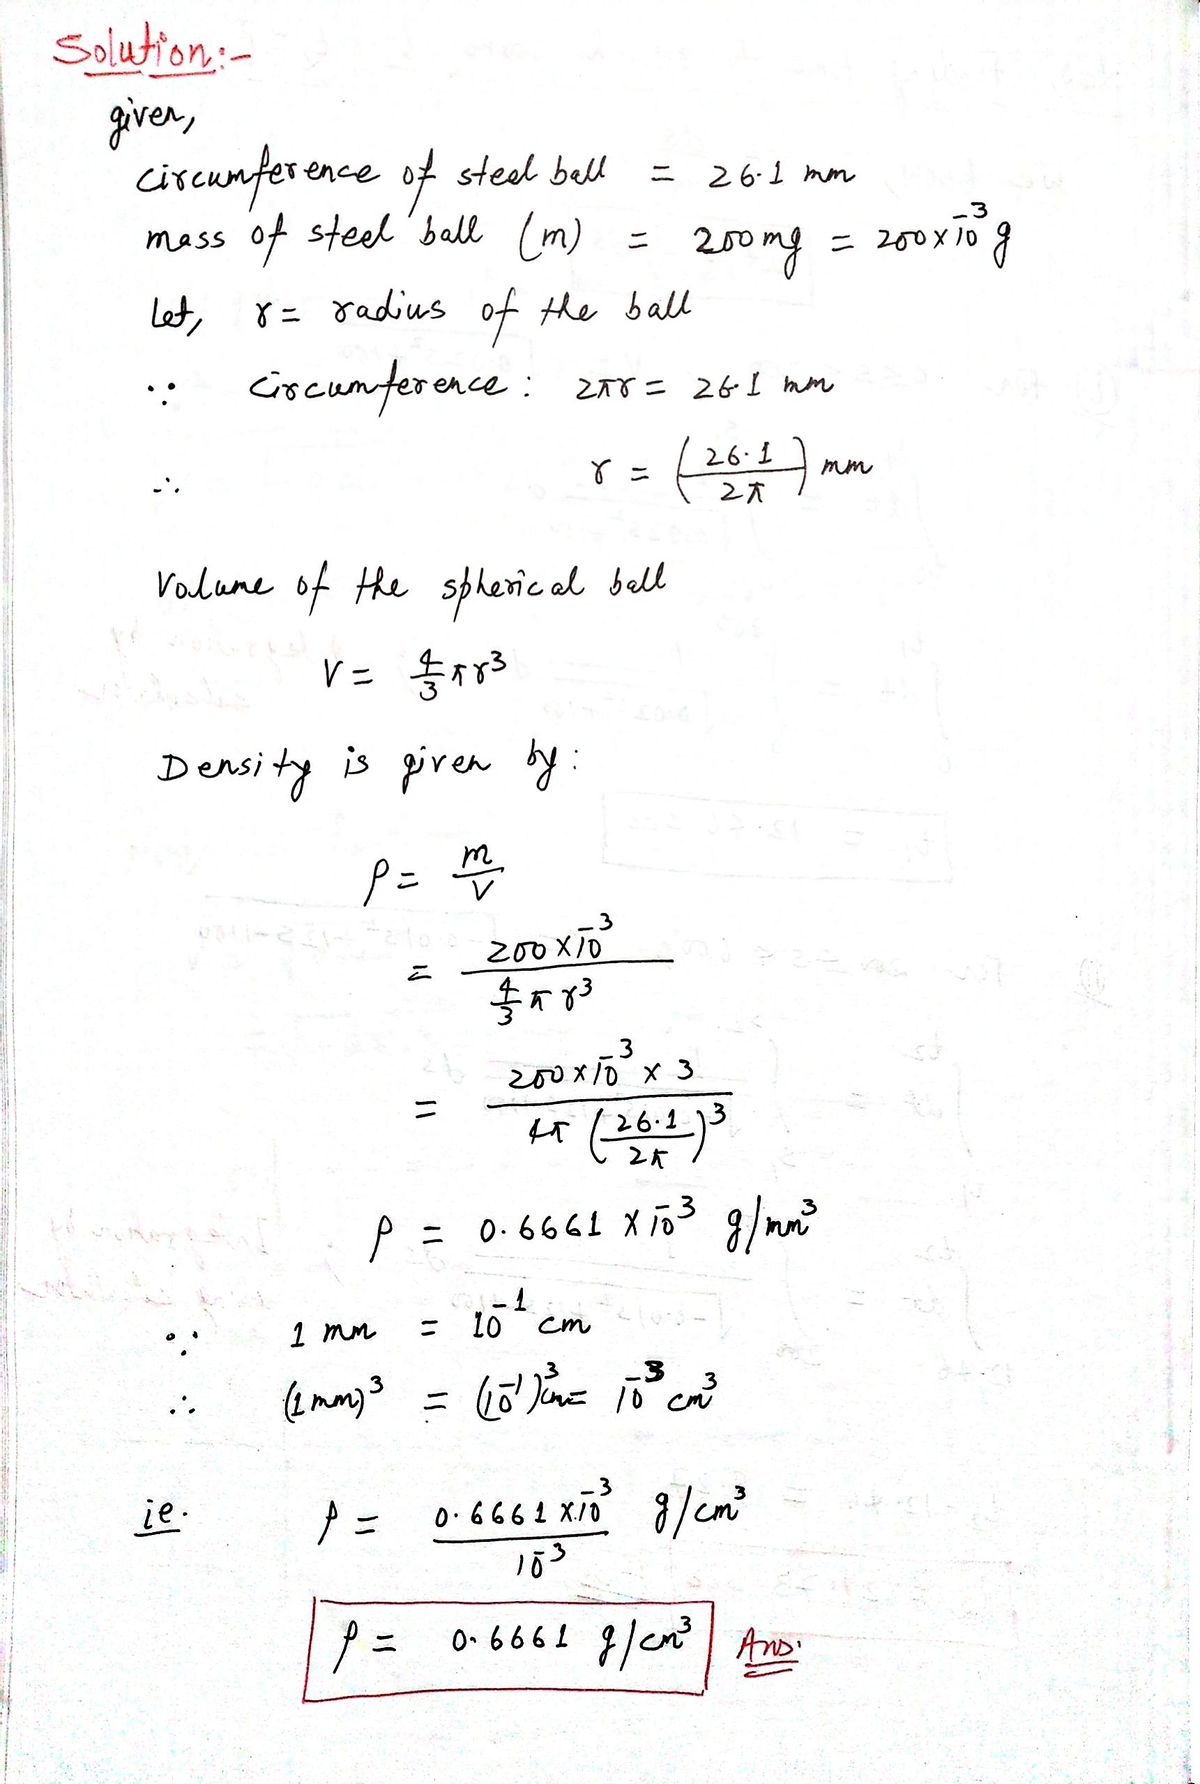 Solution:-
given,
circumference of steel ball = 26.1 mm
mass of steel ball (m) = 200mg = 200×10⁻³ g
Let, r = radius of the ball
∵ circumference : 2πr = 26.1 mm
∴ r = (26.1/2π) mm
Volume of the spherical ball
V = 4/3 πr³
Density is given by:
ρ = m/V
= 200×10⁻³ / 4/3 π r³
= 200×10⁻³ × 3 / 4π (26.1/2π)³
ρ = 0.6661 × 10⁻³ g/mm³
∵ 1 mm = 10⁻¹ cm
∴ (1 mm)³ = (10⁻¹)³cm = 10⁻³ cm³
ie. ρ = 0.6661 × 10⁻³ / 10⁻³ g/cm³
ρ = 0.6661 g/cm³ Ans.